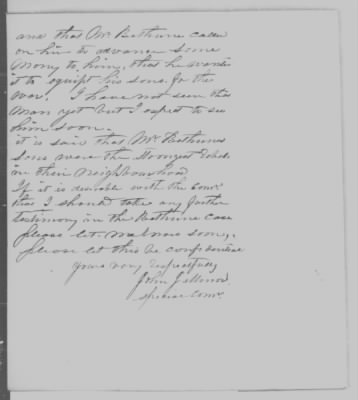 and that Mr Bethune called
on him to advance some
money to him, that he wanted
it to equipt his sons for the
war. I have not seen this
man yet but I expect to see
him soon.
it is said that Mr Bethunes
sons were the strongest Rebels
in their Neighbourhood
If it is desirable with the Comr.
that I should take any further
testimony in the Bethune case
please let me know soon,
please let this be confidential
yours very respectfully
John
Special Comr.